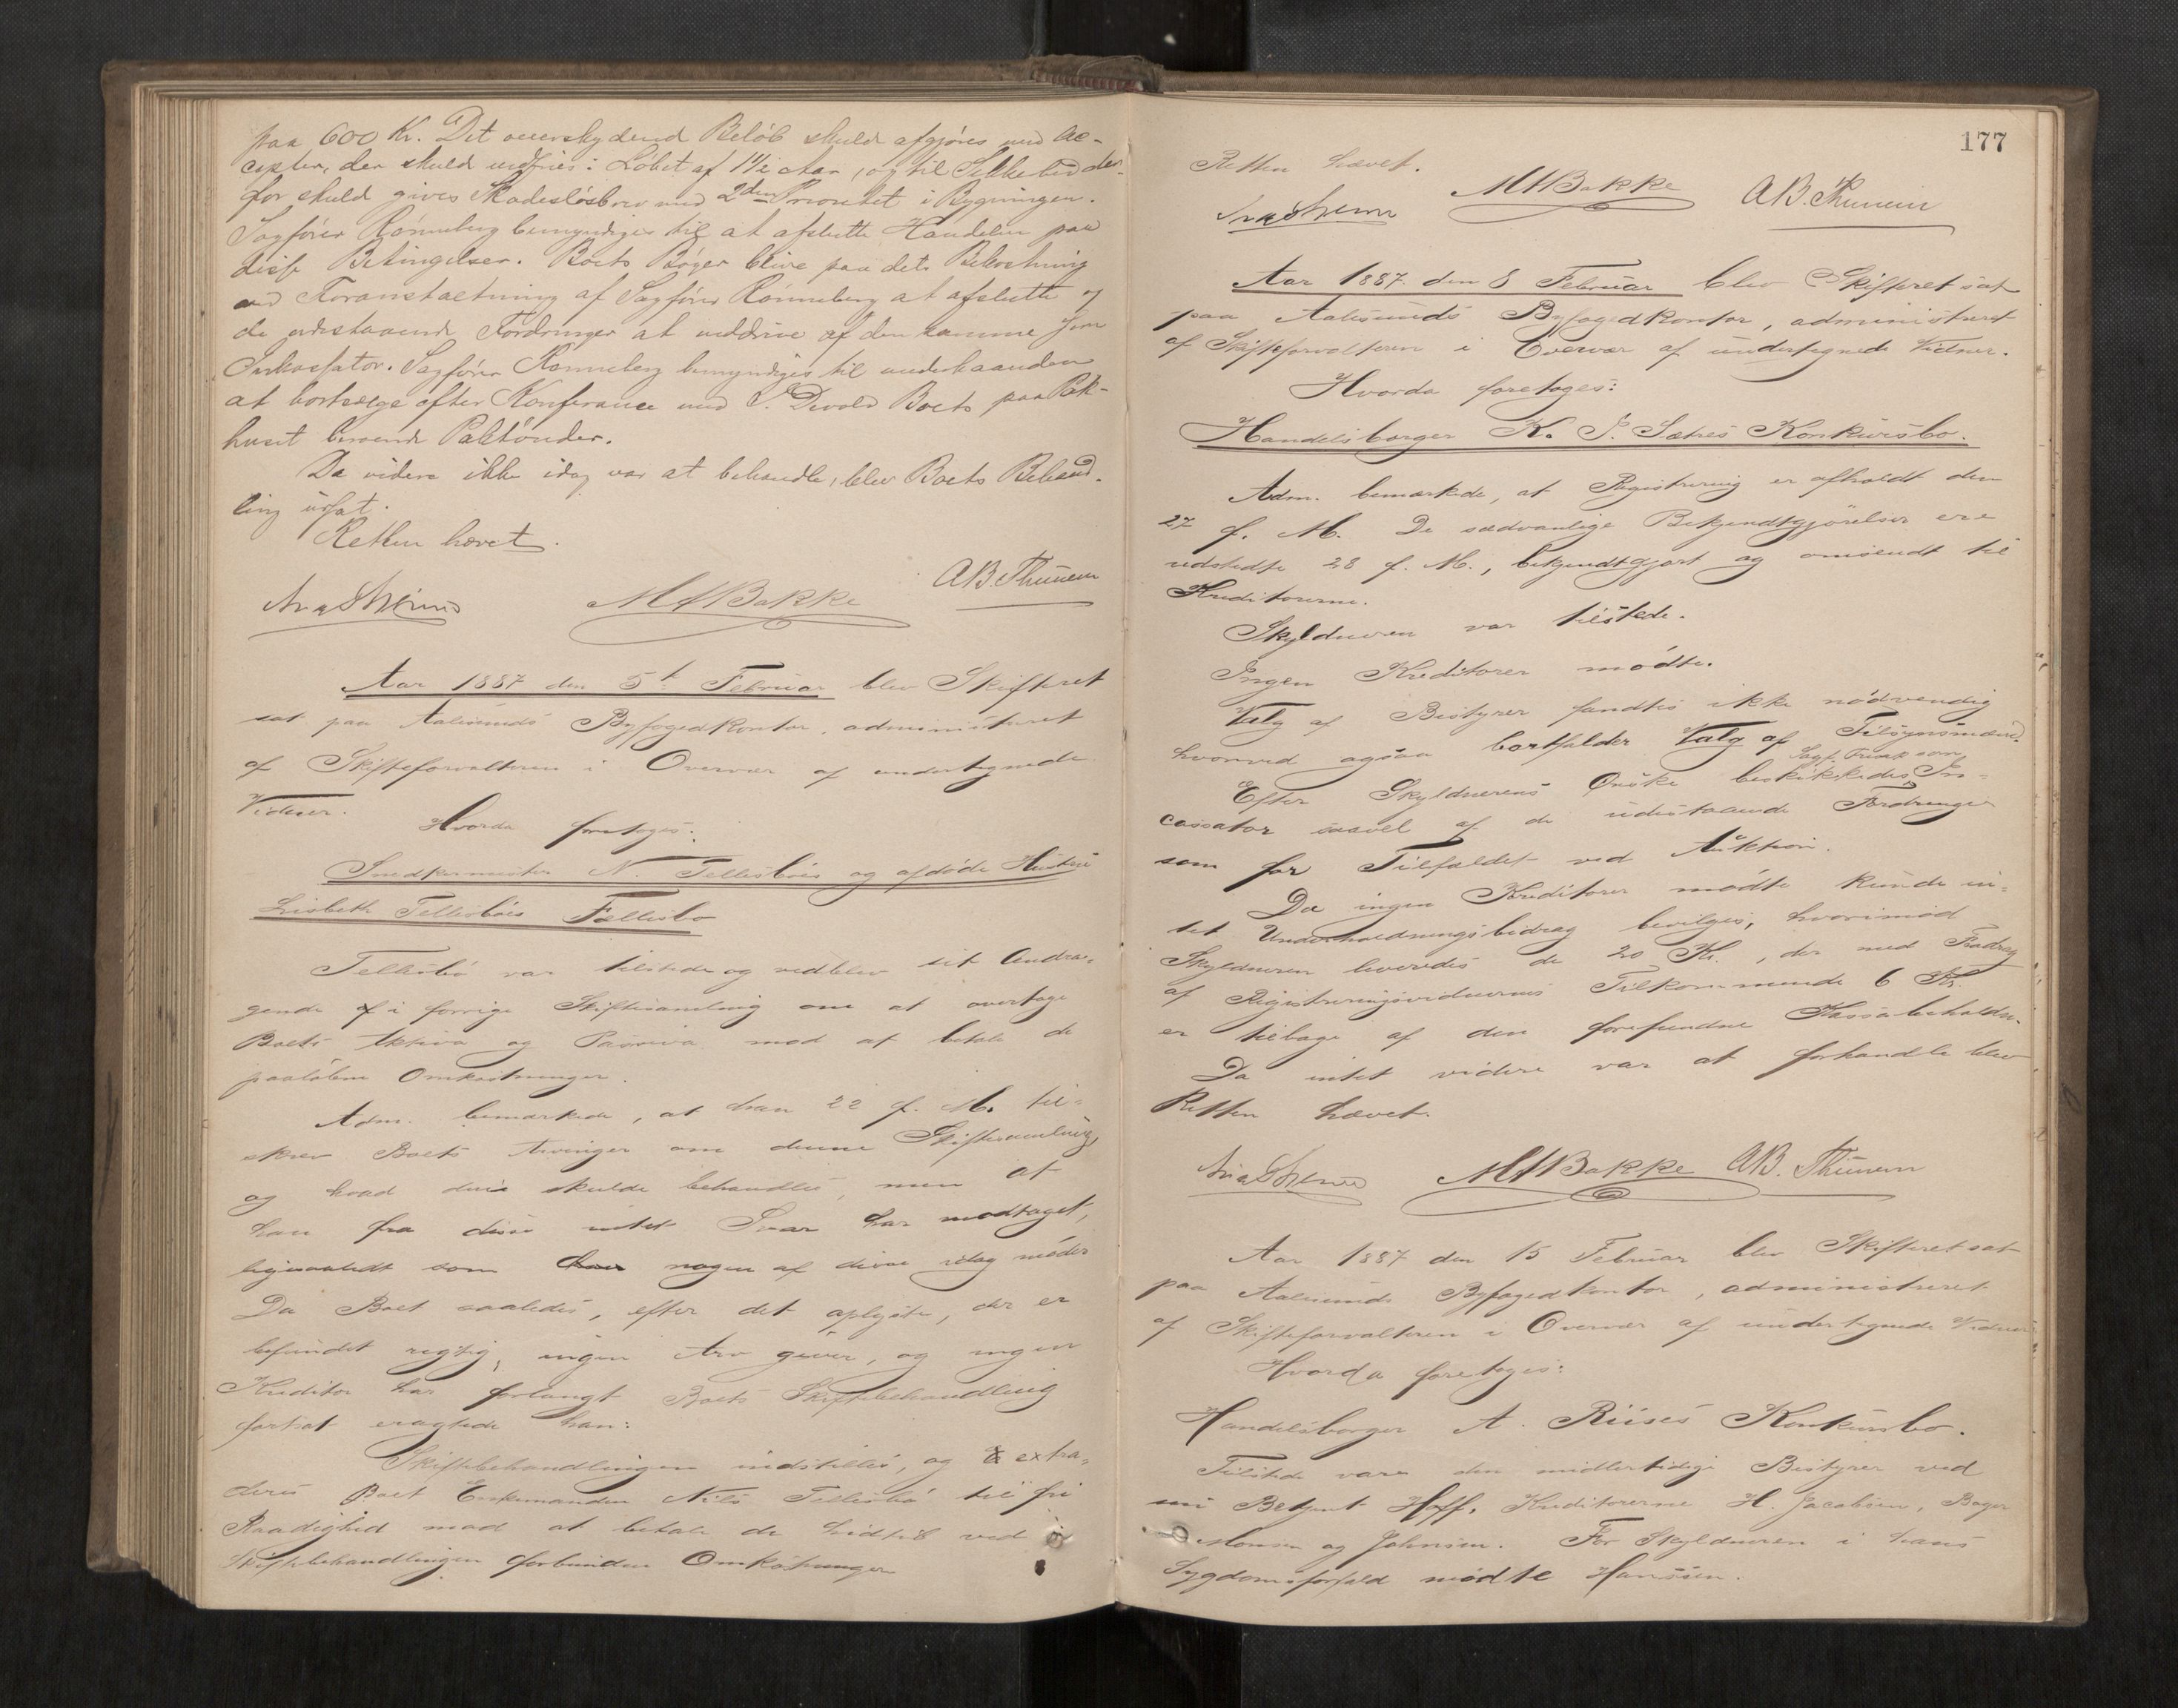 paa 600 Kr. Det overskydend Beløb skuld afgjøres med Ac-
cepter, der skuld indfries i Løbet af 1 1/2 Aar, og til Sikkerhed der-
for skuld gives Skadesløsbrev med 2den Prioritet i Bygningen.
Sagfører Rønneberg bemyndiges til at afslutte Handelen paa
disse Betingelser. Boets Bøger blive paa dets Bekostning
ved Foranstaltning af Sagfører Rønneberg at afslutte og
de udestaaende Fordringer at inddrive af den samme som
Inkassator. Sagfører Rønneberg bemyndiges til underhaanden
at bortsælge efter Konferance med Devold Boets paa Pak-
huset beroende Paktønder.
Da videre ikke idag var at behandle, blev Boets Behand-
ling udsat.
Retten hævet.
M Bakke
A.B. Thunem
Aar 1887 den 5te Februar blev Skifteret
sat paa Aalesunds Byfogedkontor, administreret
af Skifteforvalteren i Overvær af undertegnede
Vidner.
Hvorda foretoges:
Snedkermester N. Tellesbøes og afdøde Hustru
Lisbeth Tellesbøes Fællesbo
Tellesbø var tilstede og vedblev sit Andra-
gende i forrige Skiftesamling om at overtage
Boets Aktiva og Passiva mod at betale de
paaløbne Omkostninger.
Adm. bemærkede, at han 22 f. M. til-
skrev Boets Arvinger om denne Skiftesamling
og hvad deri skulde behandles, men at
han fra disse intet Svar har modtaget,
ligesaalidt som nogen af disse idag møder
Da Boet saaledes, efter det oplyste, der er
befundet rigtig, ingen Arv giver, og ingen
Kreditor har forlangt Boets Skiftebehandling
fortsat eragtede han:
Skiftebehandlingen indstilles, og extra-
deres Boet Enkemanden Nils Tellesbø til fri
Raadighed mod at betale de hidtil ved
Skiftebehandlingen forbundne Omkostninger
177
Retten hævet.
M Bakke
A.B. Thunem
Aar 1887 den 8 Februar blev Skifteret sat
paa Aalesunds Byfogedkontor, administreret
af Skifteforvalteren i Overvær af undertegnede Vidner.
Hvorda foretoges:
Handelsborger K. J. Sætres Konkursbo.
Adm. bemærkede, at Registrering er afholdt den
27 f. M. De sædvanlige Bekjendtgjørelser ere
udstedte 28 f. M., bekjendtgjort og omsendt til
Kreditorerne.
Skyldneren var tilstede.
Ingen Kreditorer mødte.
Valg af Bestyrer fandtes ikke nødvendig
hvorved ogsaa bortfalder Valg af Tilsynsmænd.
Sagf. som
Efter Skyldnerens Ønske beskikkedes In-
cassator saavel af de udestaaende Fordringer
som for Tilfældet ved Auktion.
Da ingen Kreditorer mødte kunde in-
tet Underholdningsbidrag bevilges, hvorimod
Skyldneren leveredes de 20 Kr., der med Fradrag
af Registreringsvidnernes Tilkommende 6 Kr.
er tilbage af den forefundne Kassabeholdn.
Da intet videre var at forhandle blev
Retten hævet.
M Bakke
A.B. Thunem
Aar 1887 den 15 Februar blev Skifteret sat
paa Aalesunds Byfogedkontor, administreret
af Skifteforvalteren i Overvær af undertegnede Vidner
Hvorda foretoges:
Handelsborger A. Riises Konkursbo.
Tilstede vare den midlertidige Bestyrer ved
sin Betjent Hoff, Kreditorerne H. Jacobsen, Bager
Monsen og Johnsen. For Skyldneren i hans
Sygdomsforfald mødte Hanssen.